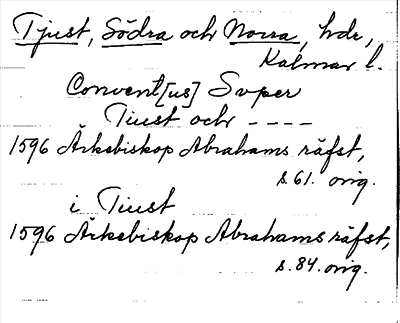 Tjust, Södra och Norra, hdr,
Kalmar l.
Convent[us] Super
Tiust och ----
1596 Ärkebiskop Abrahams räfst,
s. 61. orig.
i Tiust
1596 Ärkebiskop Abrahams räfst,
s. 84. orig.